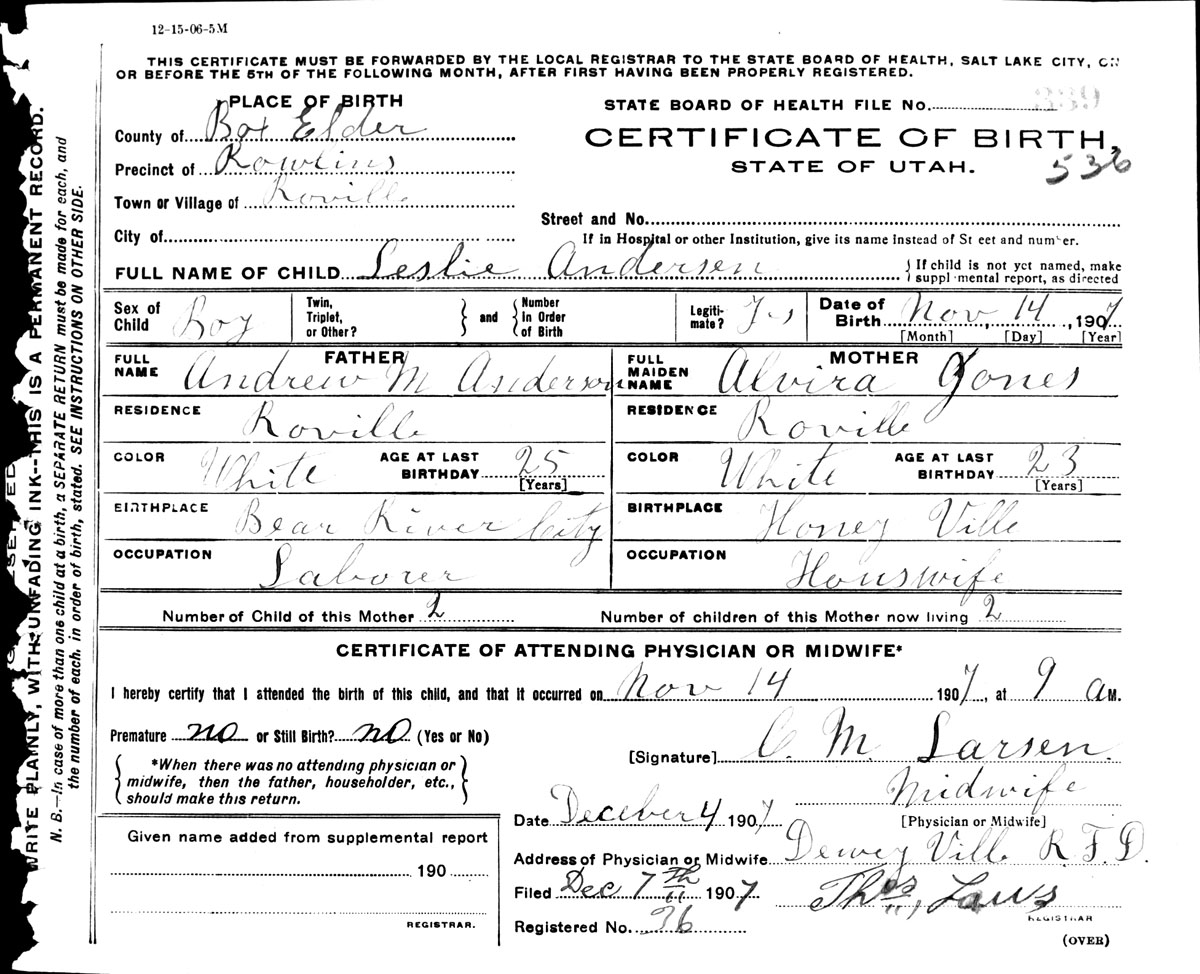 12-15-06-5M
THIS CERTIFICATE MUST BE FORWARDED BY THE LOCAL REGISTRAR TO THE STATE BOARD OF HEALTH, SALT LAKE CITY, ON
OR BEFORE THE 5TH OF THE FOLLOWING MONTH, AFTER FIRST HAVING BEEN PROPERLY REGISTERED.
PLACE OF BIRTH
STATE BOARD OF HEALTH FILE No. 339
County of Box Elder
CERTIFICATE OF BIRTH,
Precinct of Rowlins
STATE OF UTAH.
536
Town or Village of Roville
Street and No.
City of
If in Hospital or other Institution, give its name instead of Street and number.
FULL NAME OF CHILD Leslie Andersen
If child is not yet named, make
supplemental report, as directed
Sex of Child Boy
Twin, Triplet, or Other?
and
Number in Order of Birth
Legiti-mate? Yes
Date of Birth Nov 14, 1907
[Month] [Day] [Year]
FATHER
FULL NAME Andrew M Anderson
MOTHER
FULL MAIDEN NAME Alvira Jones
RESIDENCE Roville
RESIDENCE Roville
COLOR White AGE AT LAST BIRTHDAY 25 [Years]
COLOR White AGE AT LAST BIRTHDAY 23 [Years]
BIRTHPLACE Bear River City
BIRTHPLACE Honey Ville
OCCUPATION Laborer
OCCUPATION Houswife
Number of Child of this Mother 2
Number of children of this Mother now living 2
CERTIFICATE OF ATTENDING PHYSICIAN OR MIDWIFE*
I hereby certify that I attended the birth of this child, and that it occurred on Nov 14 1907, at 9 a M.
Premature no or Still Birth? no (Yes or No)
[Signature] C. M. Larsen.
*When there was no attending physician or
midwife, then the father, householder, etc.,
should make this return.
Midwife
[Physician or Midwife]
Date Decebver 4 1907
Given name added from supplemental report
190
REGISTRAR.
Address of Physician or Midwife Dewey Ville R. F. D.
Filed Dec 7th 1907
Thos, Laws
REGISTRAR
Registered No. 36
(OVER)
WRITE PLAINLY, WITH UNFADING INK-THIS IS A PERMANENT RECORD.
N. B.—In case of more than one child at a birth, a SEPARATE RETURN must be made for each, and
the number of each, in order of birth, stated. SEE INSTRUCTIONS ON OTHER SIDE.